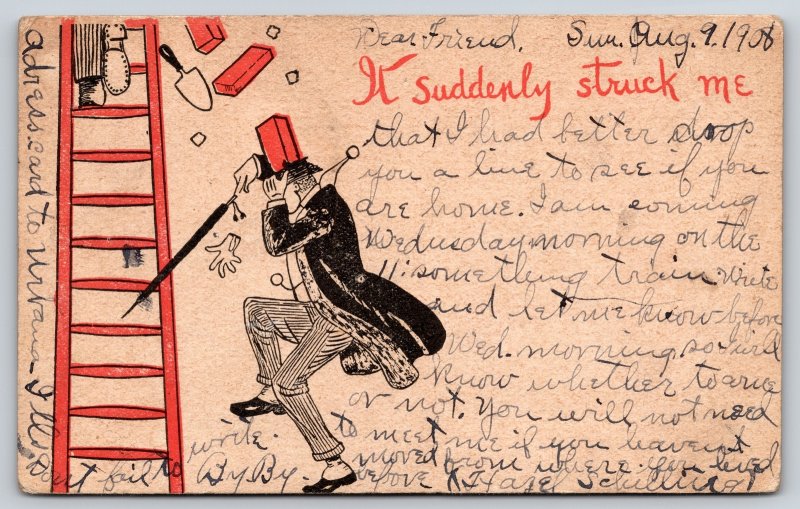 Dear Friend, Sun. Aug. 9, 1908
It suddenly struck me
that I had better drop
you a line to see if you
are home. I am coming
Wednesday morning on the
11: something train write
and let me know before
Wed. morning so I will
know whether to come
or not. You will not need
to meet me if you havent
moved from where you lived
before (Hazel Schilling)
adress card to Urbana - Ills
Dont fail to write. By By.